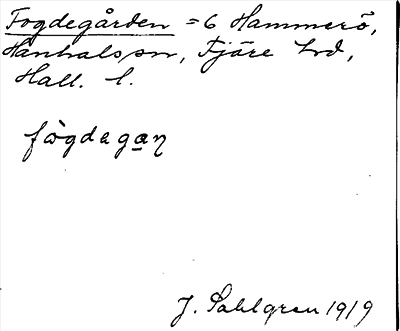 Fogdegården = 6 Hammerö,
Hanhals sn, Fjäre hd,
Hall. l.
fògdegaɳ
J. Sahlgren 1919